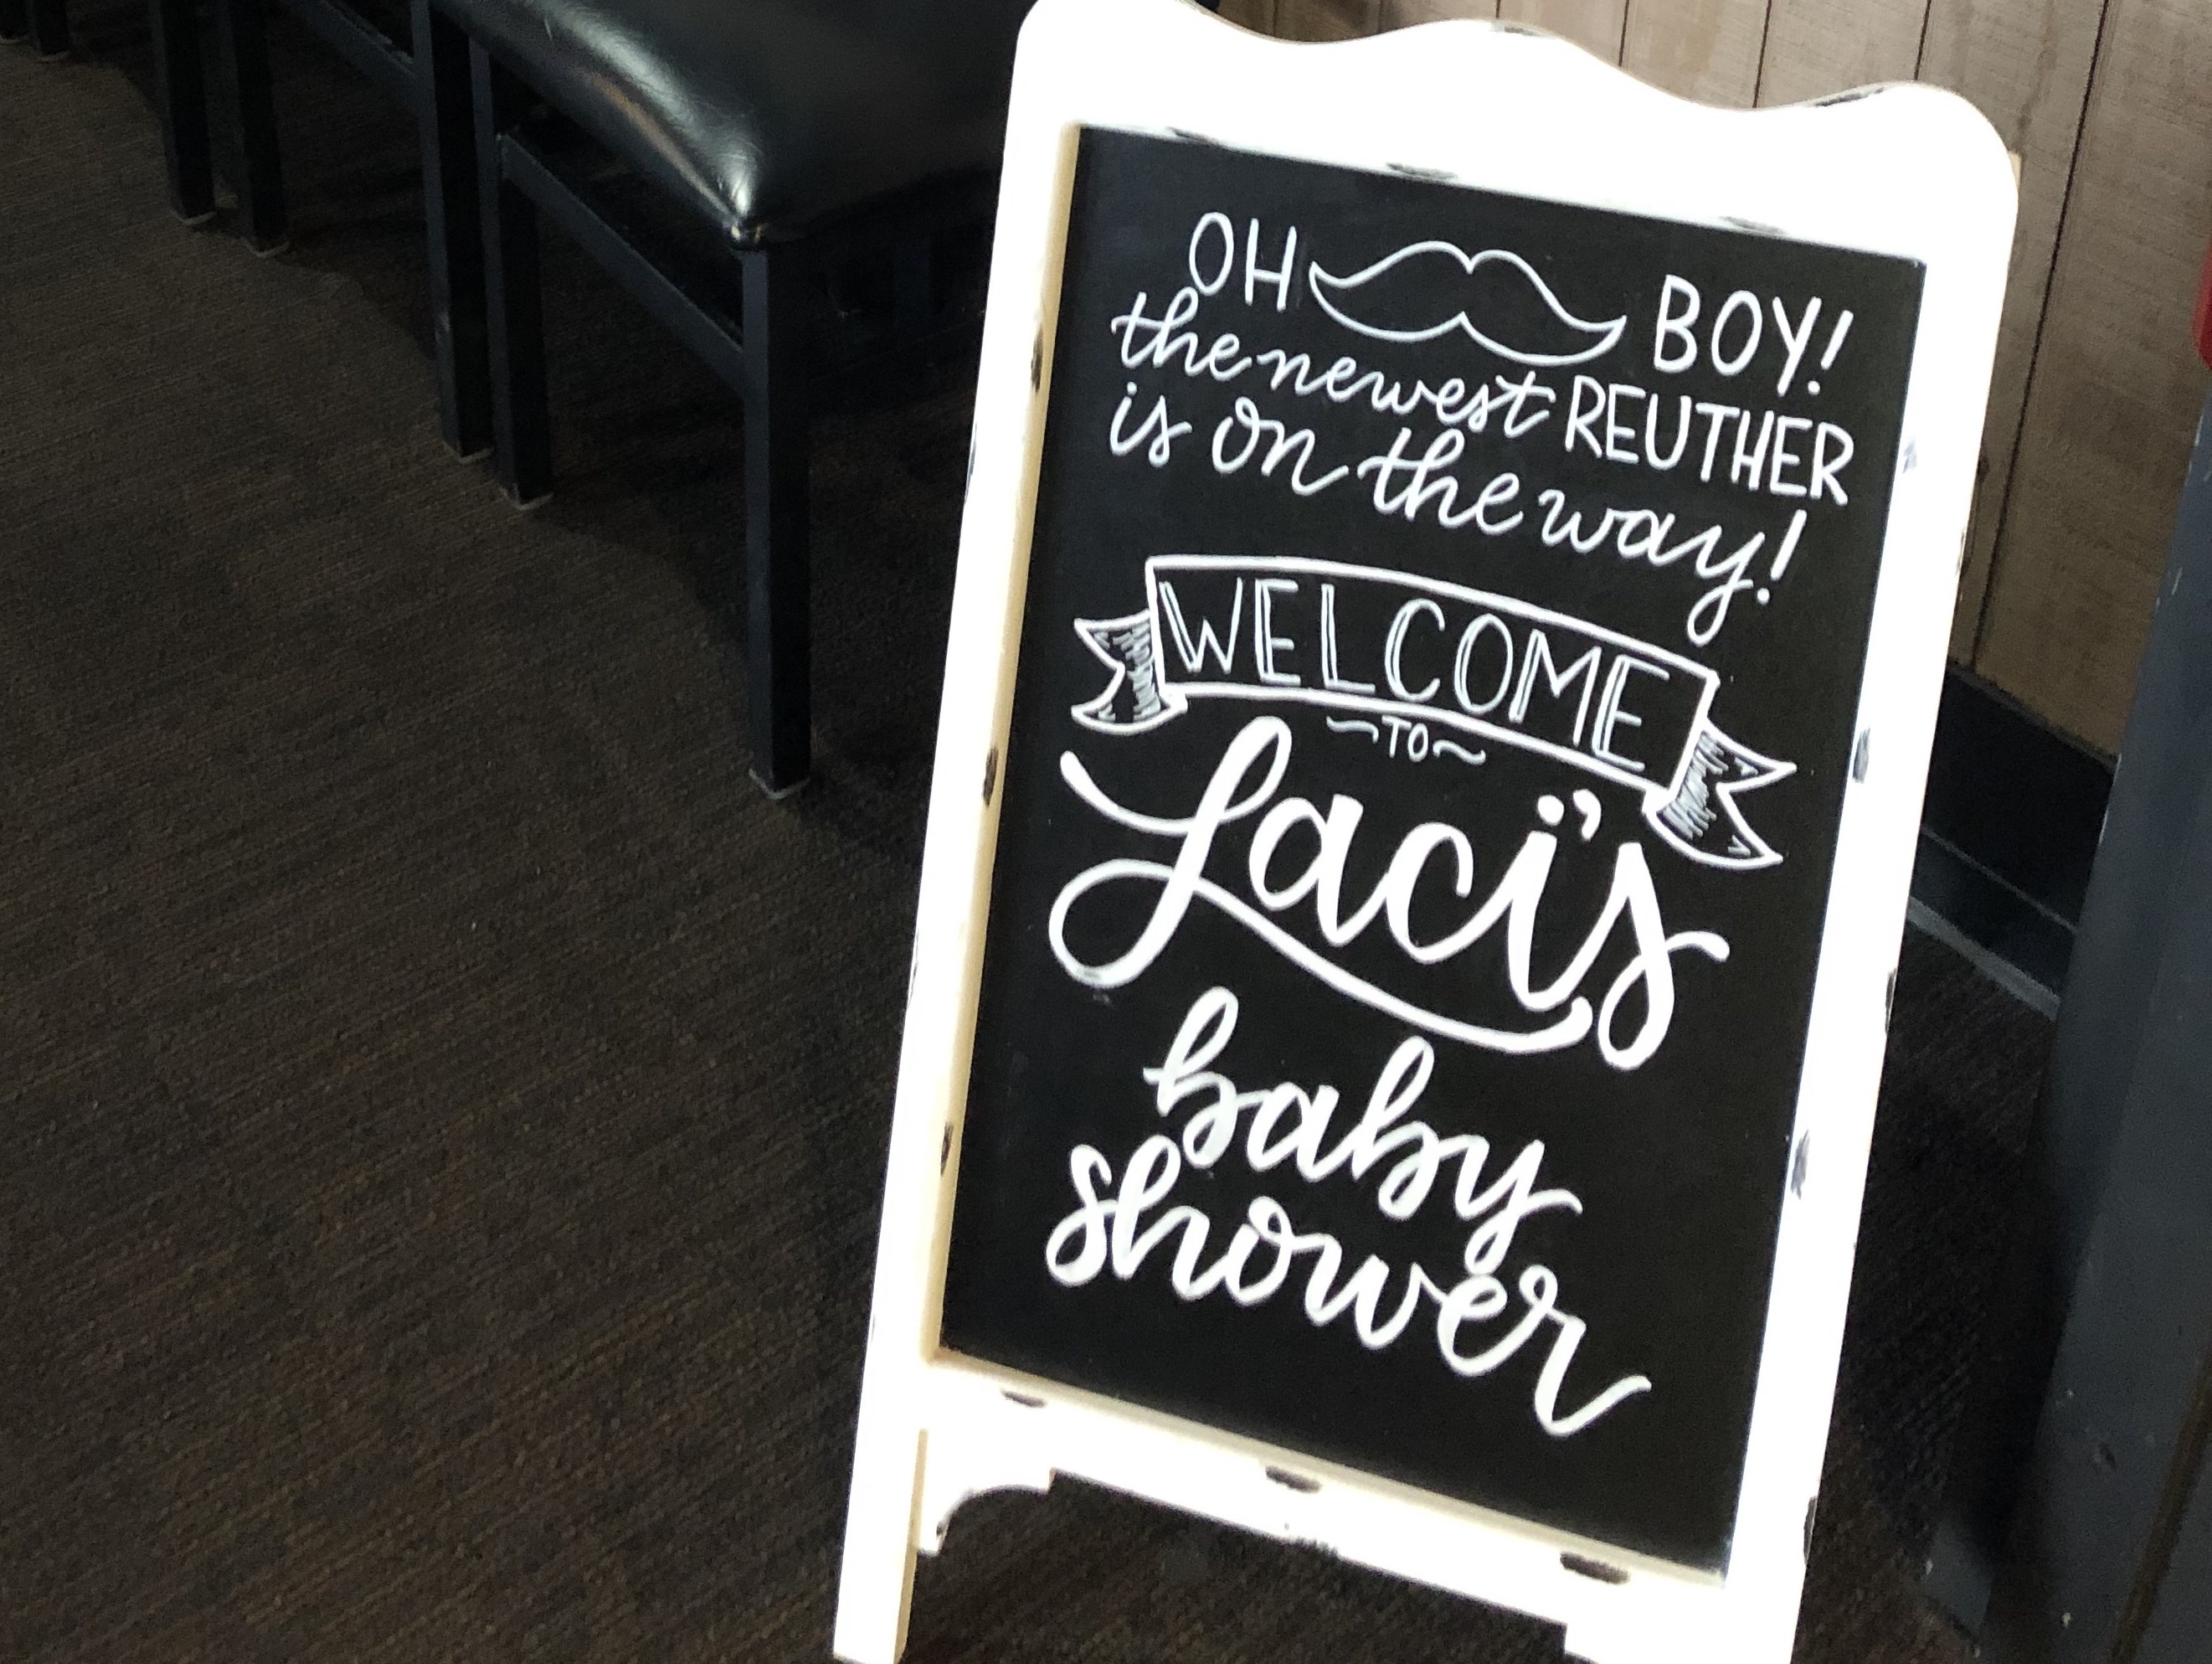 OH BOY!
the newest REUTHER
is on the way!
WELCOME
~TO~
Laci's
baby
shower